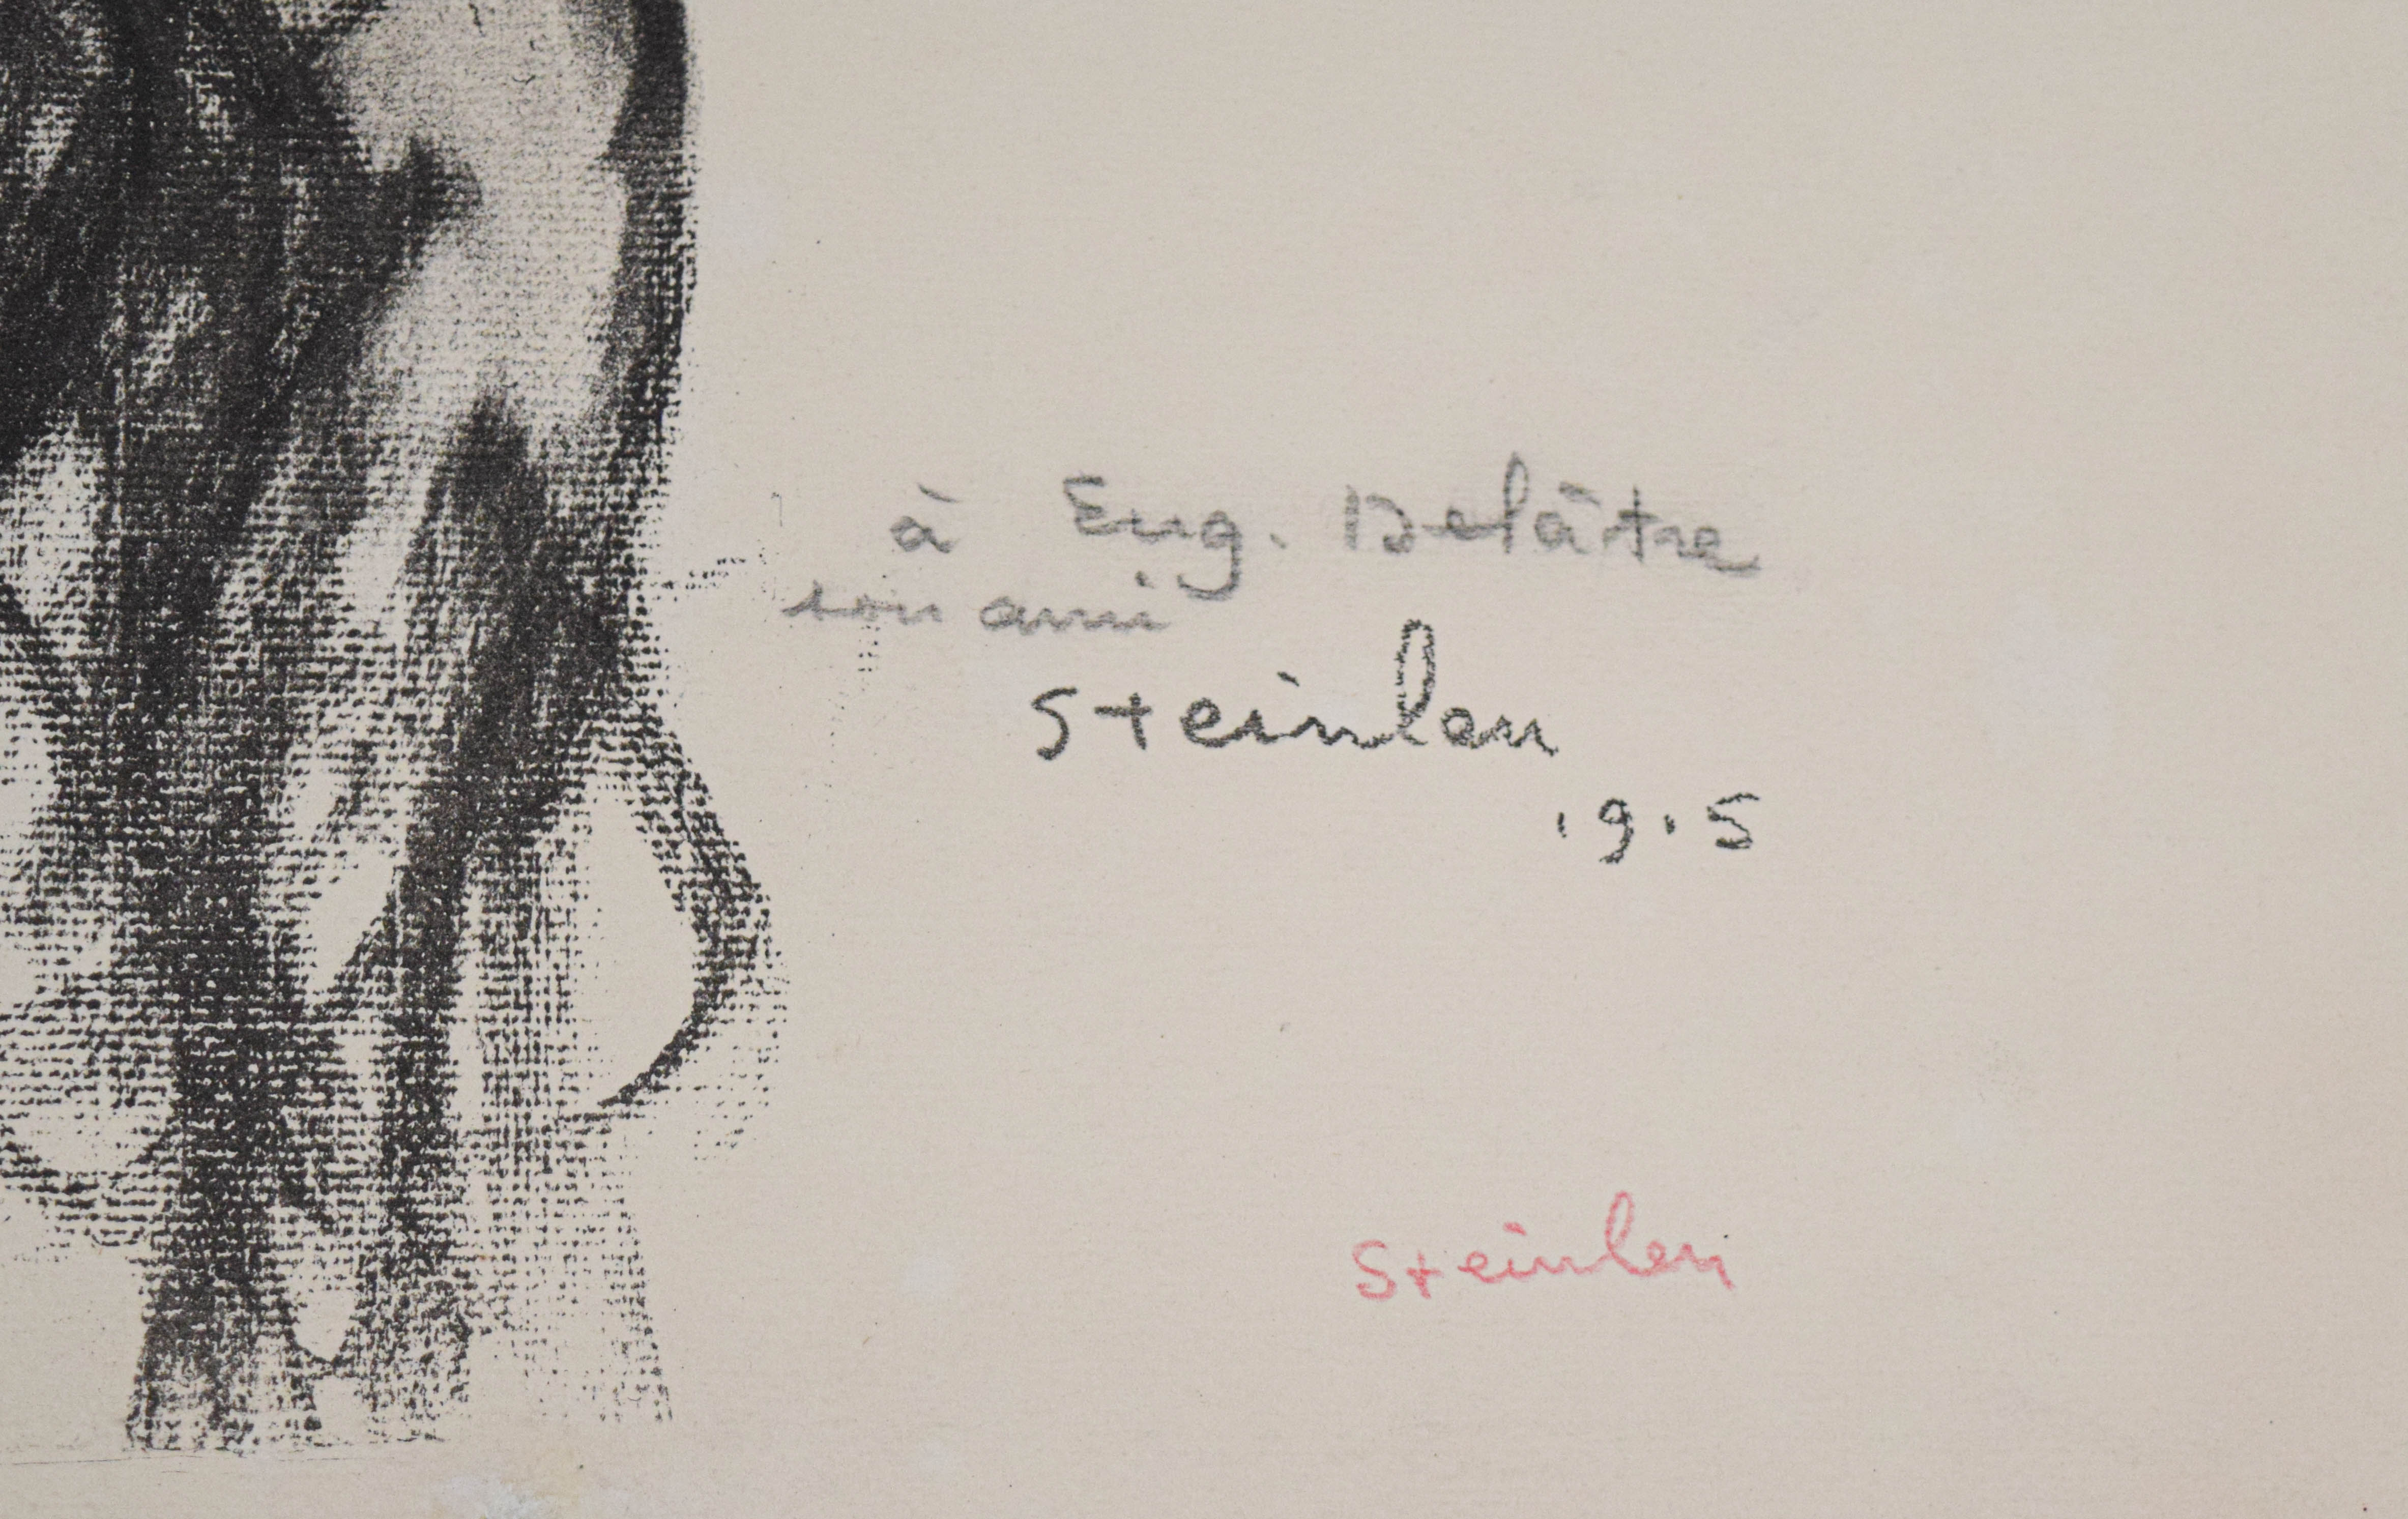 à Eug. Delâtre
son ami
Steinlen
1915
Steinlen